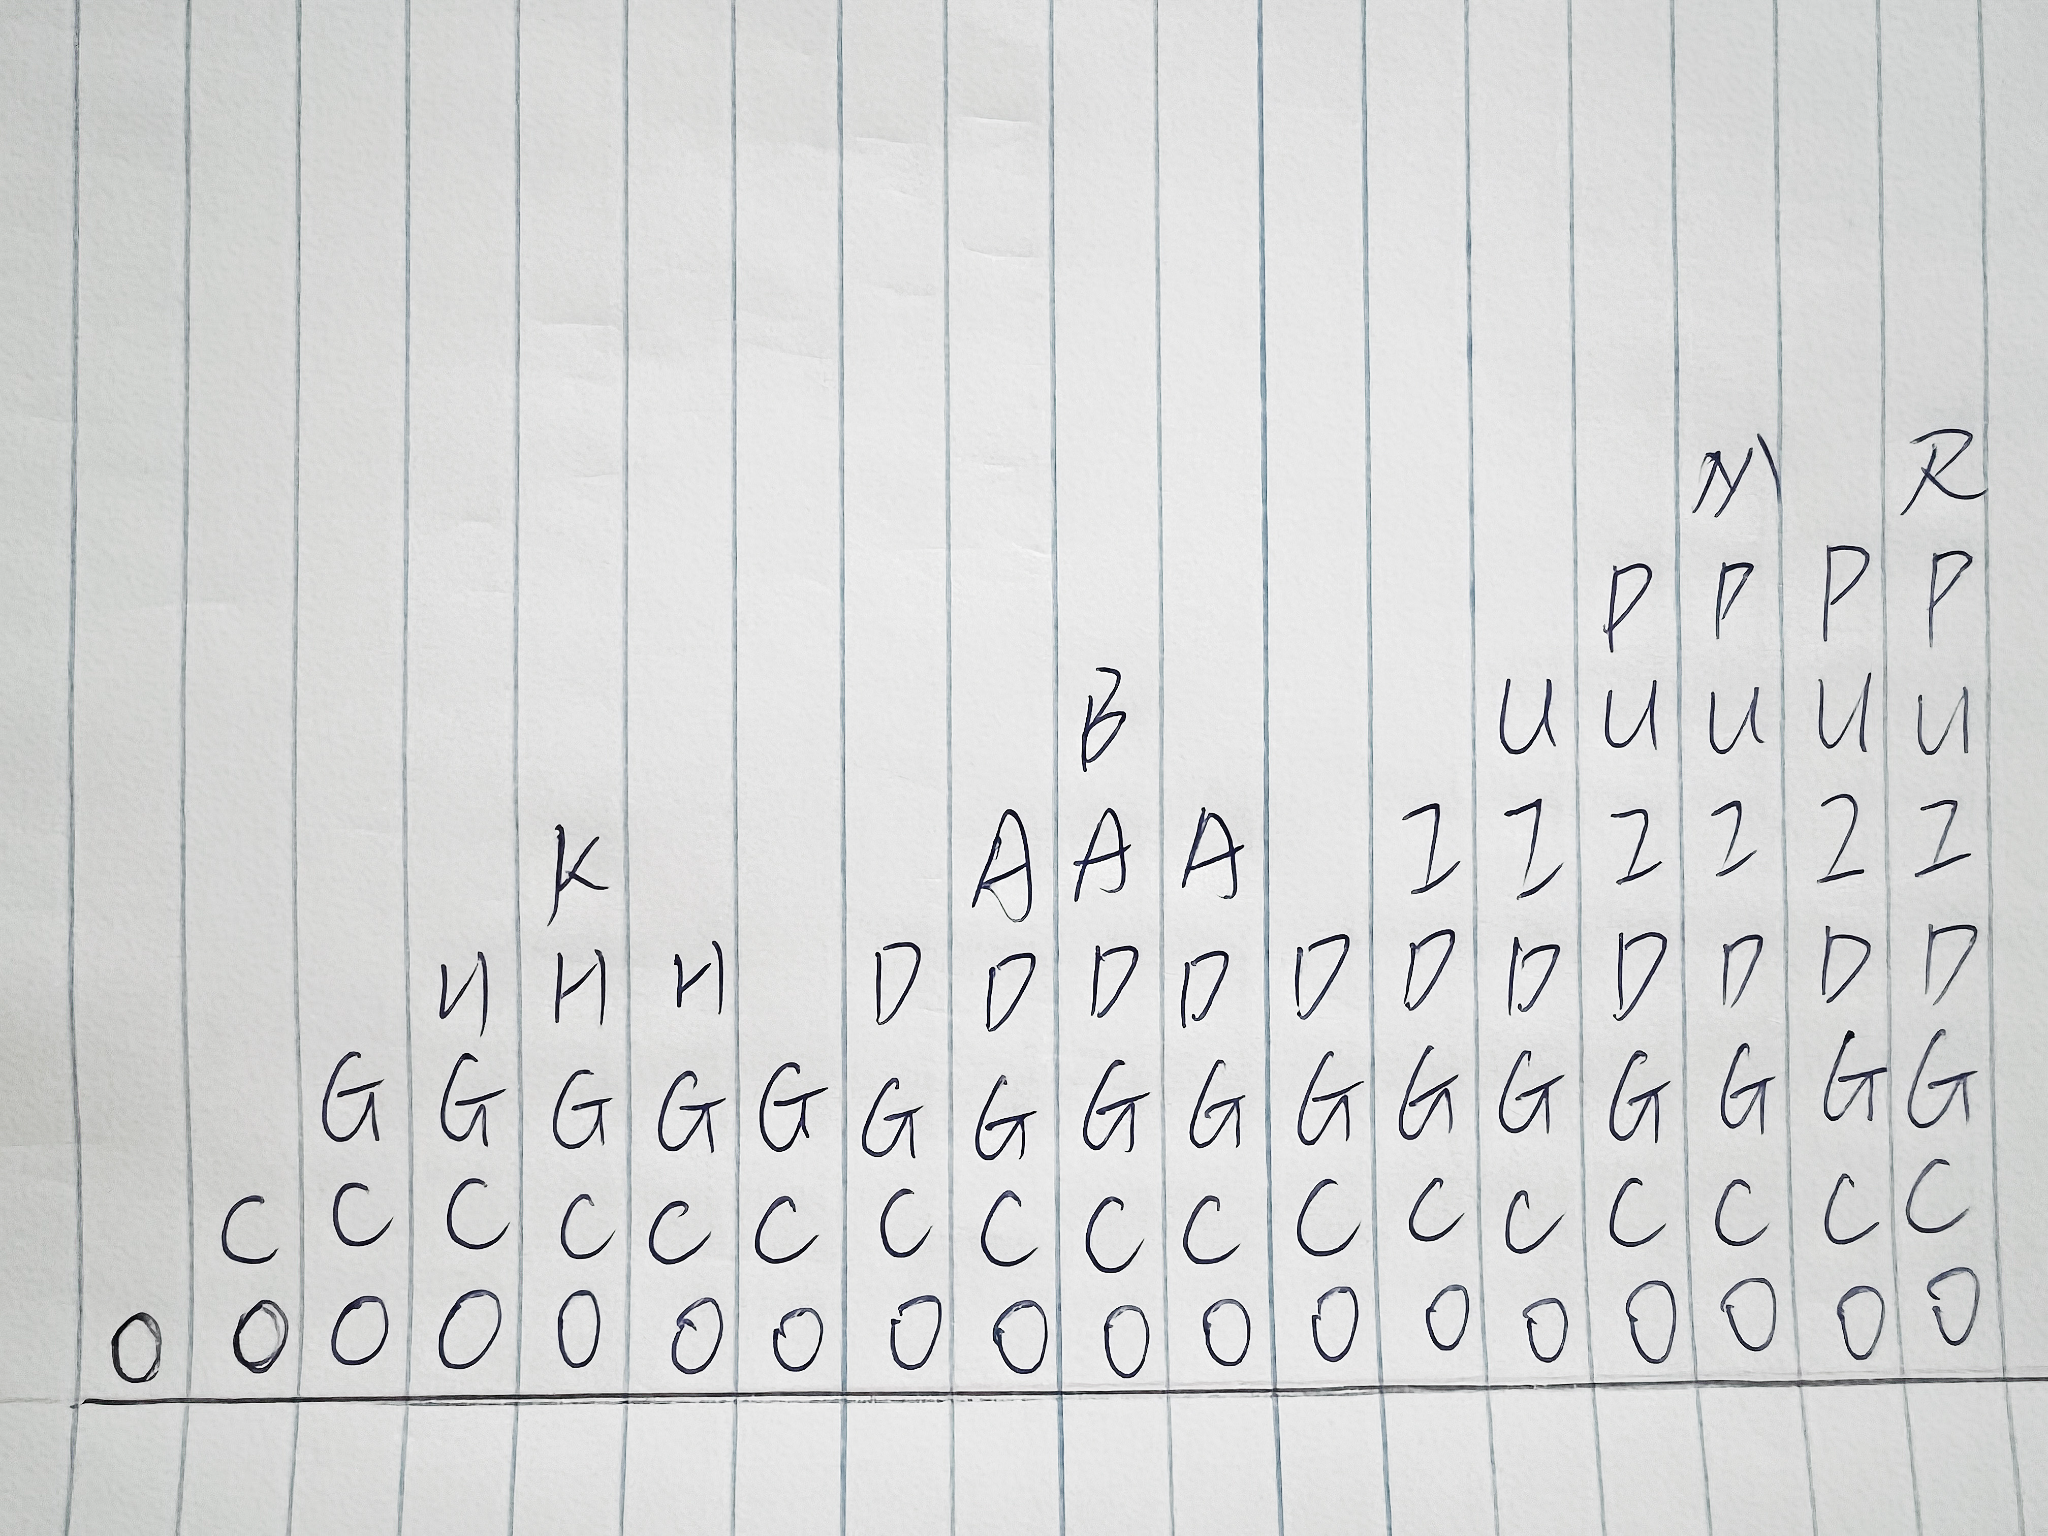 R
P P P P
B U U U U U
K A A A I I I I I I
H H H D D D D D D D D D D D
G G G G G G G G G G G G G G G G
C C C C C C C C C C C C C C C C C
O O O O O O O O O O O O O O O O O O